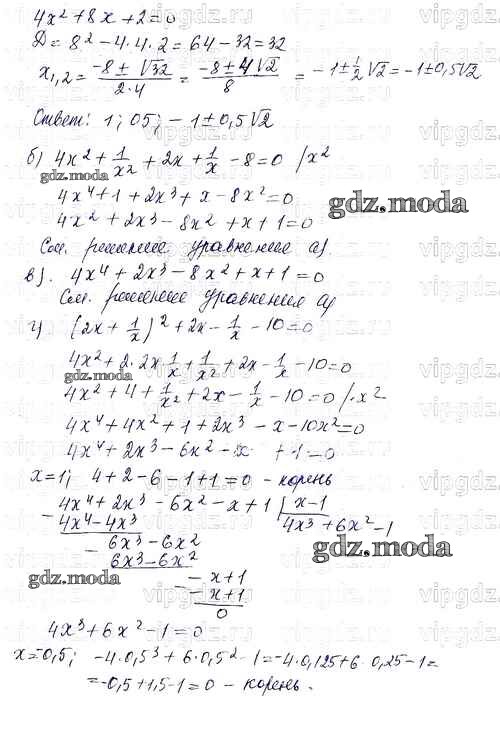 4x² + 8x + 2 = 0
D = 8² - 4·4·2 = 64 - 32 = 32
x₁,₂ = (-8 ± √32)/(2·4) = (-8 ± 4√2)/8 = -1 ± 1/2 √2 = -1 ± 0,5√2
Ответ: 1; 05; -1 ± 0,5√2
б) 4x² + 1/x² + 2x + 1/x - 8 = 0 /x²
gdz.moda
4x⁴ + 1 + 2x³ + x - 8x² = 0
gdz.moda
4x² + 2x³ - 8x² + x + 1 = 0
См. решение уравнения а).
в). 4x⁴ + 2x³ - 8x² + x + 1 = 0
См. решение уравнения а)
г) (2x + 1/x)² + 2x - 1/x - 10 = 0
4x² + 2·2x 1/x + 1/x² + 2x - 1/x - 10 = 0
gdz.moda
4x² + 4 + 1/x² + 2x - 1/x - 10 = 0 /·x²
4x⁴ + 4x² + 1 + 2x³ - x - 10x² = 0
4x⁴ + 2x³ - 6x² - x + 1 = 0
x = 1; 4 + 2 - 6 - 1 + 1 = 0 - корень
4x⁴ + 2x³ - 6x² - x + 1 | x - 1
- 4x⁴ - 4x³ 4x³ + 6x² - 1
6x³ - 6x²
- 6x³ - 6x²
gdz.moda
gdz.moda
- x + 1
- - x + 1
0
4x³ + 6x² - 1 = 0
x = -0,5; -4·0,5³ + 6·0,5² - 1 = -4·0,125 + 6·0,25 - 1 =
= -0,5 + 1,5 - 1 = 0 - корень.